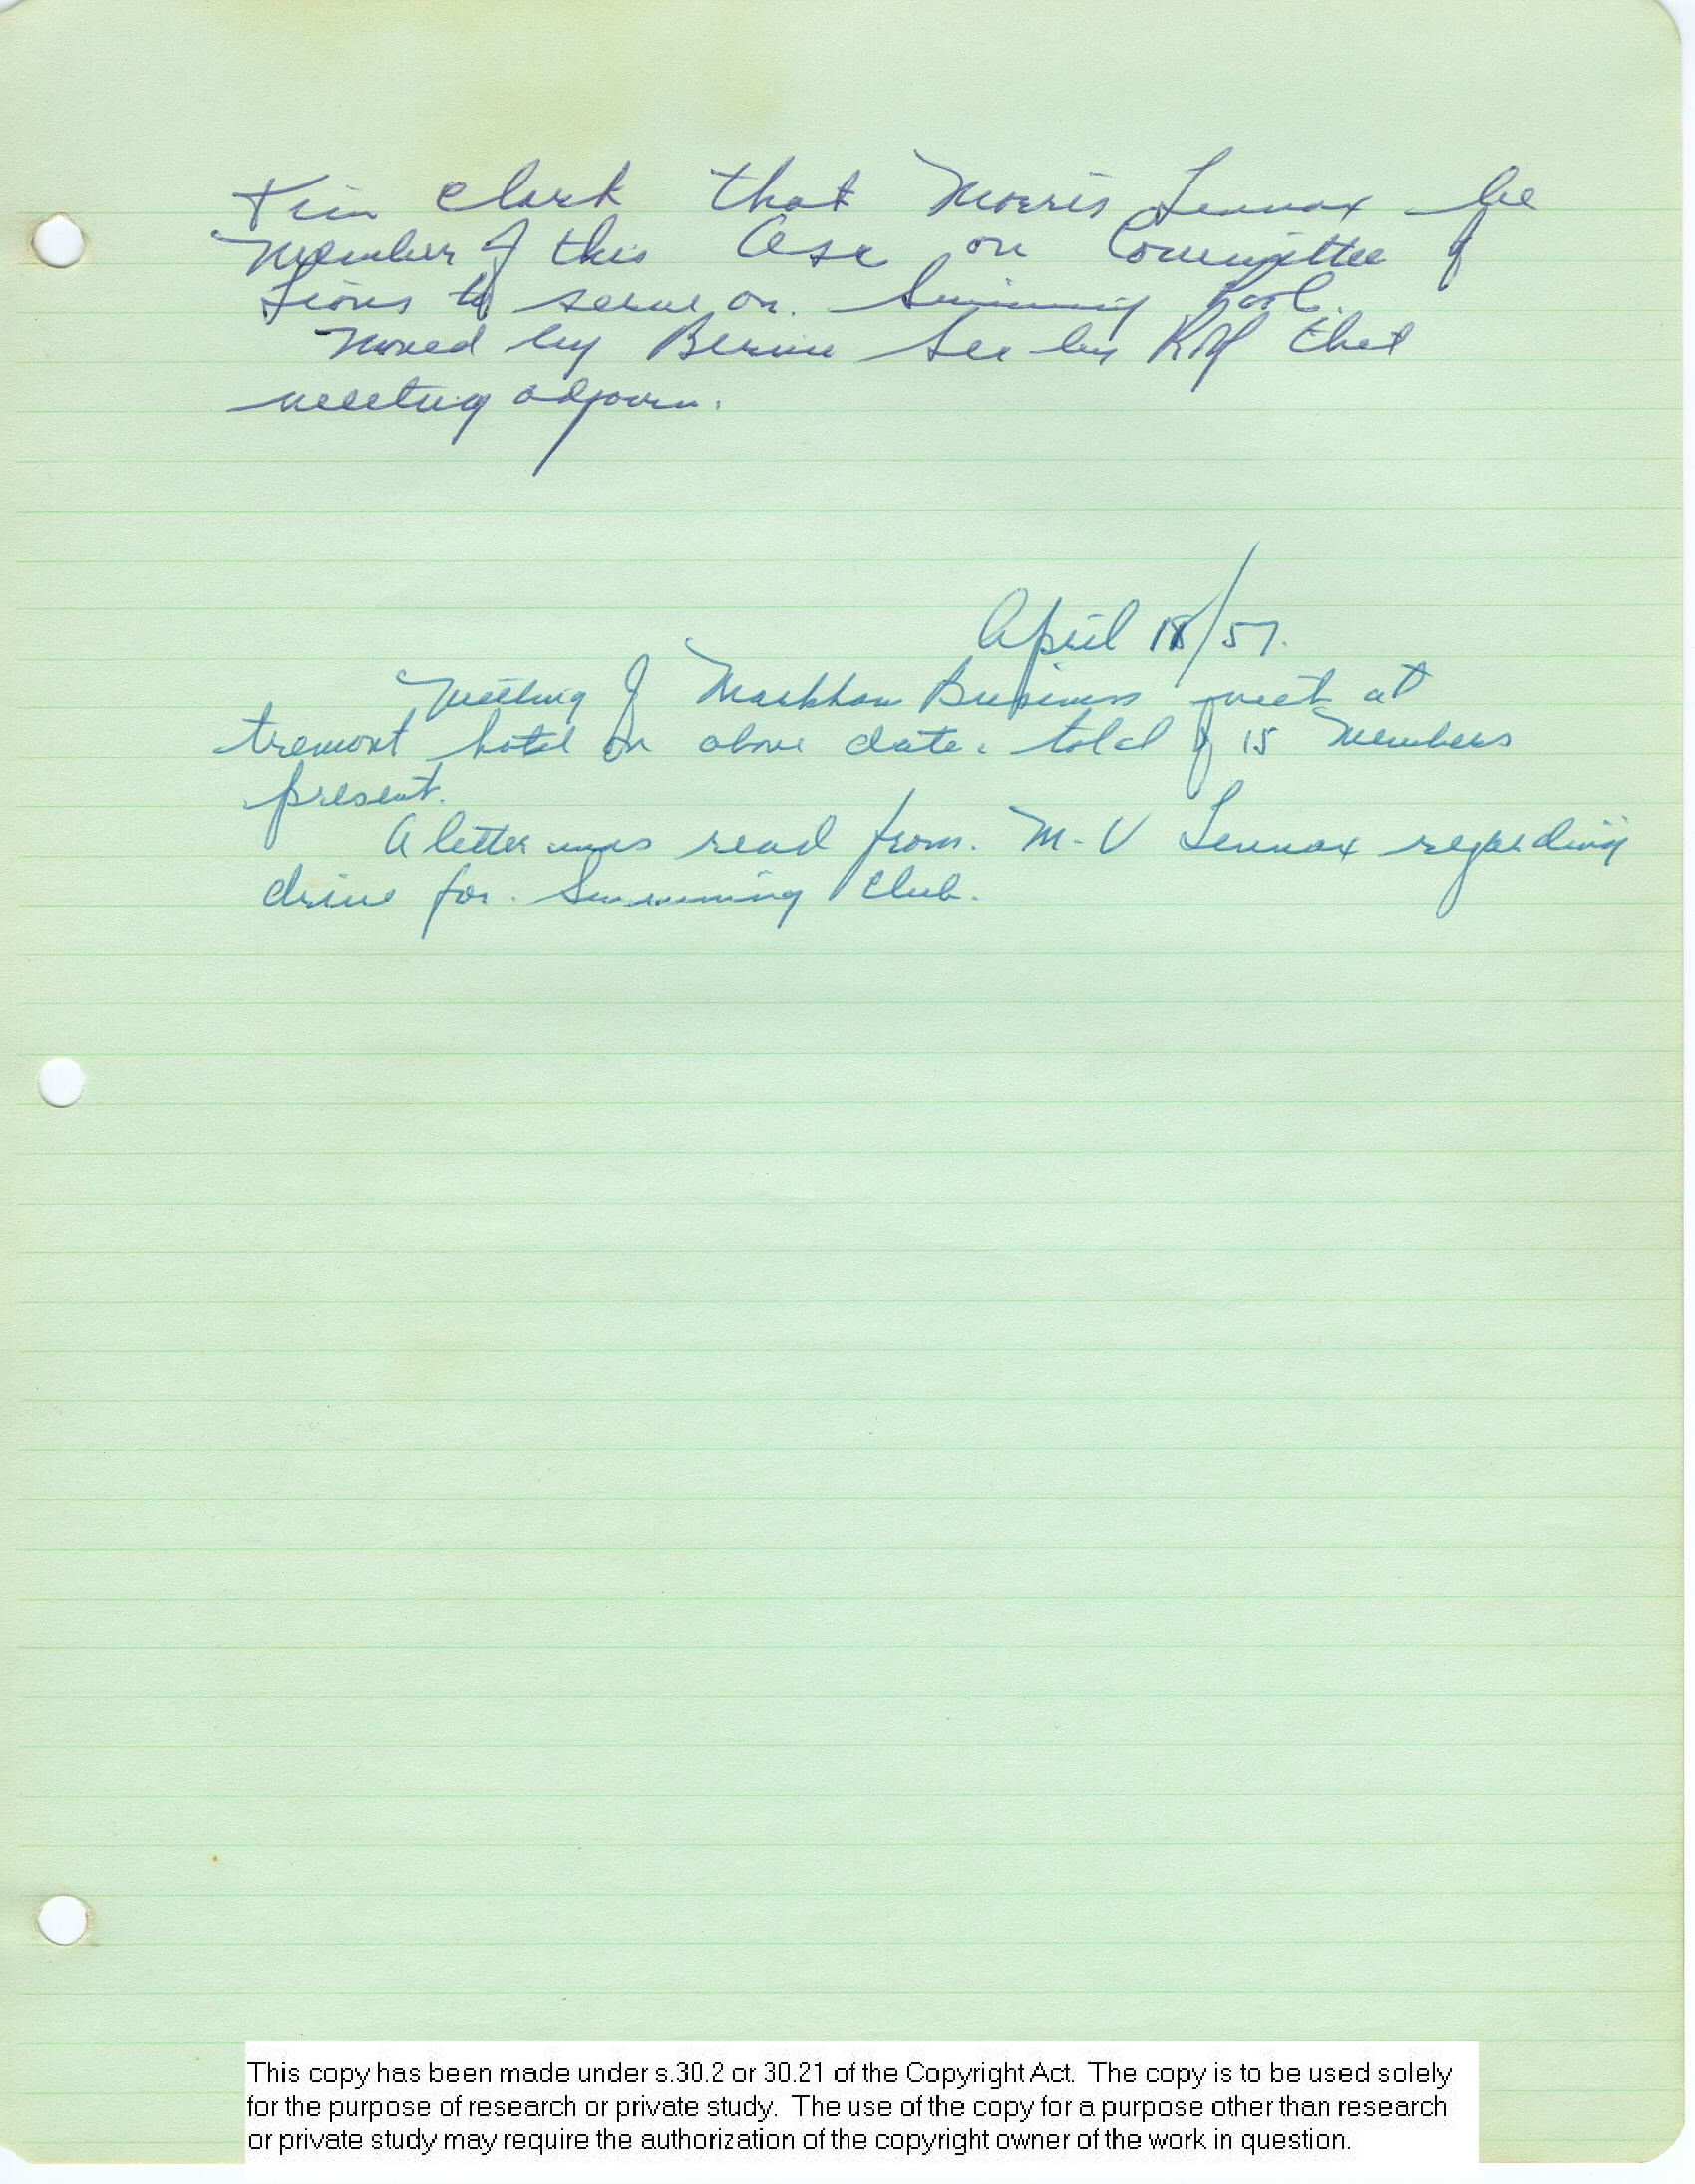 Kim Clark that Morris Lennox be
Member of this Ass on Committee of
Lions to serve on. Swimming Pool.
Moved by Bernie Sec by Raf that
meeting adjourn.
April 18/57.
Meeting of Markham Business meet at
tremont hotel on above date. total of 15 Members
present.
A letter was read from. M-V Lennox regarding
drive for. Swimming Club.
This copy has been made under s.30.2 or 30.21 of the Copyright Act. The copy is to be used solely
for the purpose of research or private study. The use of the copy for a purpose other than research
or private study may require the authorization of the copyright owner of the work in question.